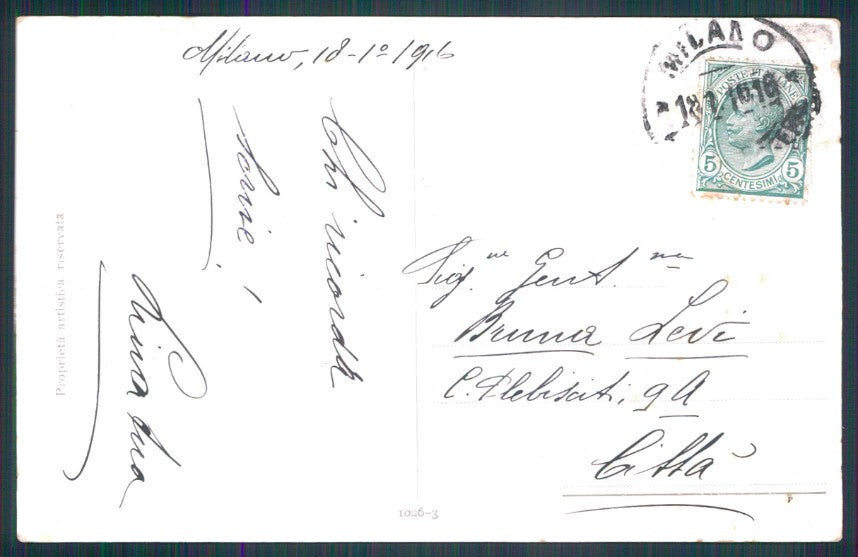 Milano, 18-1º 1916
Chi ricorda
scrive!
Nina tua
Proprietà artistica riservata
MILANO
18.1.1916
POSTE ITALIANE
5 CENTESIMI 5
Sig.ne Gent.ma
Bruna Levi
C. Plebisciti, 9A
Città
1026-3